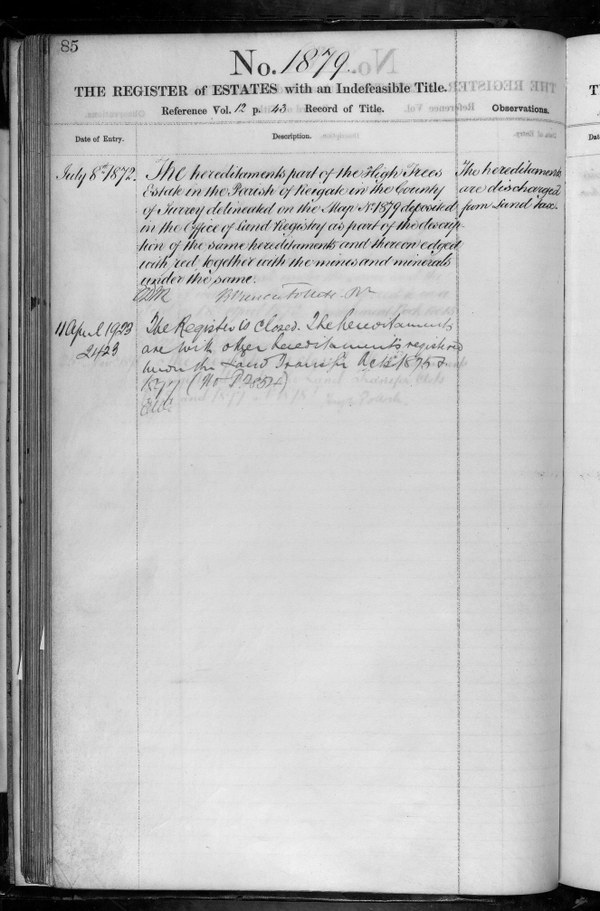 85
No. 1879.
THE REGISTER of ESTATES with an Indefeasible Title.
Reference Vol. 12 p. 43 Record of Title.
Observations.
Date of Entry.
Description.
July 8th 1872.
The hereditaments part of the High Trees
Estate in the Parish of Reigate in the County
of Surrey delineated on the Map No 1879 deposited
in the Office of Land Registry as part of the descrip
tion of the same hereditaments and thereon edged
with red together with the mines and minerals
under the same.
The hereditaments
are discharged
from Land tax.
Follett
11 April 1923
2423
The Register is closed. The hereditaments
are with other hereditaments registered
under the Land Transfer Acts 1875 &
(No P.